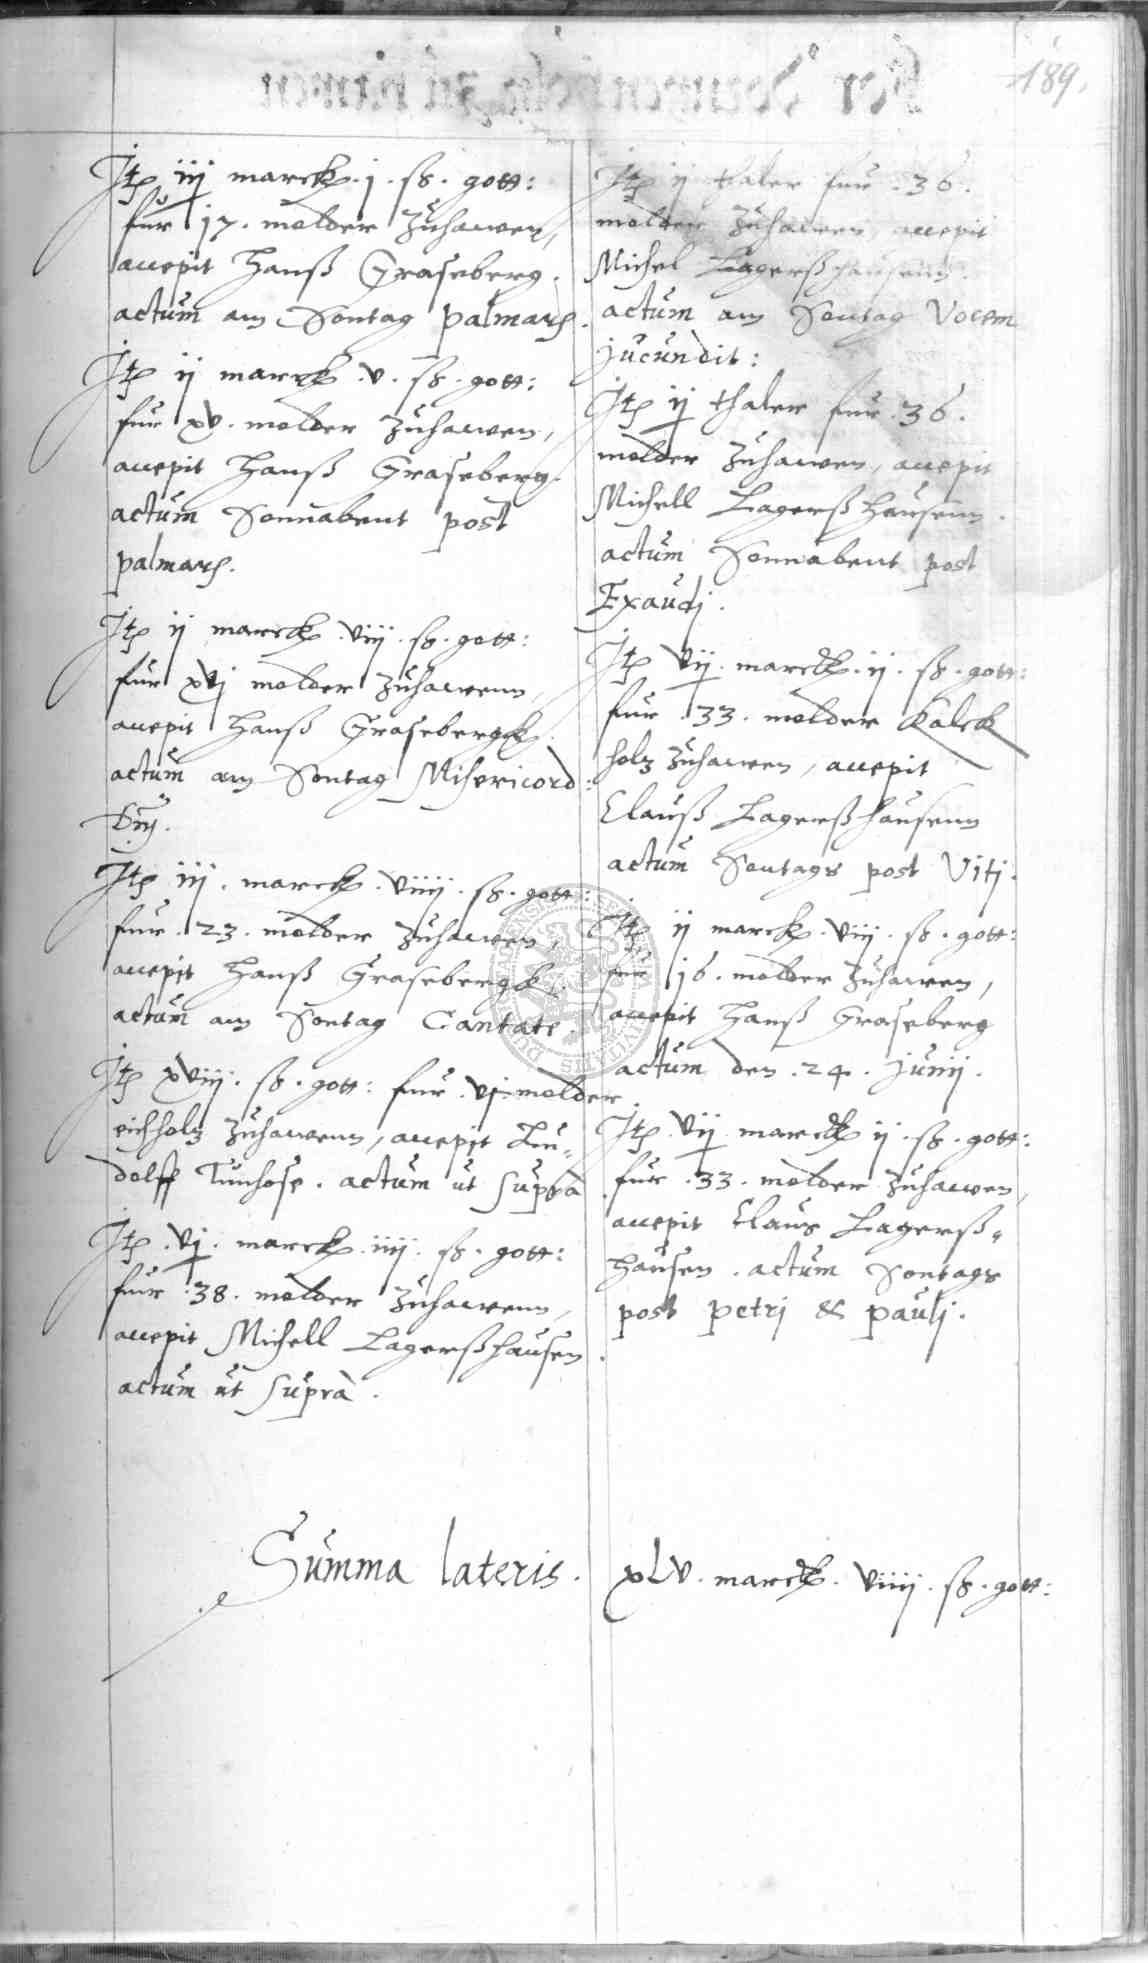 189.
Jtē iij marck. j. ß. gott:
fur 17. molder Zuhawen,
accepit Hanß Graseberg.
actum am Sontag palmarū.
Jtē ij marck. v. ß. gott:
fur xv. molder Zuhawen,
accepit Hanß Graseberg.
actum Sonnabent post
palmarū.
Jtē ij marck. viij. ß. gott:
fur xvj molder Zuhawenn,
accepit Hanß Grasebergk.
actum am Sontag Misericord:
Dnj.
Jtē iij. marck. viiij. ß. gott:
fur .23. molder Zuhawen,
accepit Hanß Grasebergk.
actum am Sontag Cantate.
Jtē xviij. ß. gott: fur .vj. molder
eichholz Zuhawenn, accepit Lu-
dolff Tunhose. actum ut supra
Jtē .vj. marck. iiij. ß. gott:
fur .38. molder Zuhawenn,
accepit Michell Lagerßhausen.
actum ut supra.
Jtē ij thaler fur .36.
molder Zuhawen, accepit
Michel Lagerßhausenn.
actum am Sontag Vocem
jucundit:
Jtē ij thaler fur .36.
molder Zuhawen, accepit
Michell Lagerßhausenn.
actum Sonnabent post
Exaudj.
Jtē vij. marck. ij. ß. gott:
fur .33. molder Kalck
holz Zuhawen, accepit
Clauß Lagerßhausenn
actum Sontags post Vitj.
Jtē ij marck. viij. ß. gott:
fur 16. molder Zuhawen,
accepit Hanß Graseberg
actum den .24. Junij.
Jtē vij marck ij. ß. gott:
fur .33. molder Zuhawen,
accepit Claus Lagerß-
hausen. actum Sontags
post petrj & paulj.
Summa lateris. xLv. marck. viiij. ß. gott: